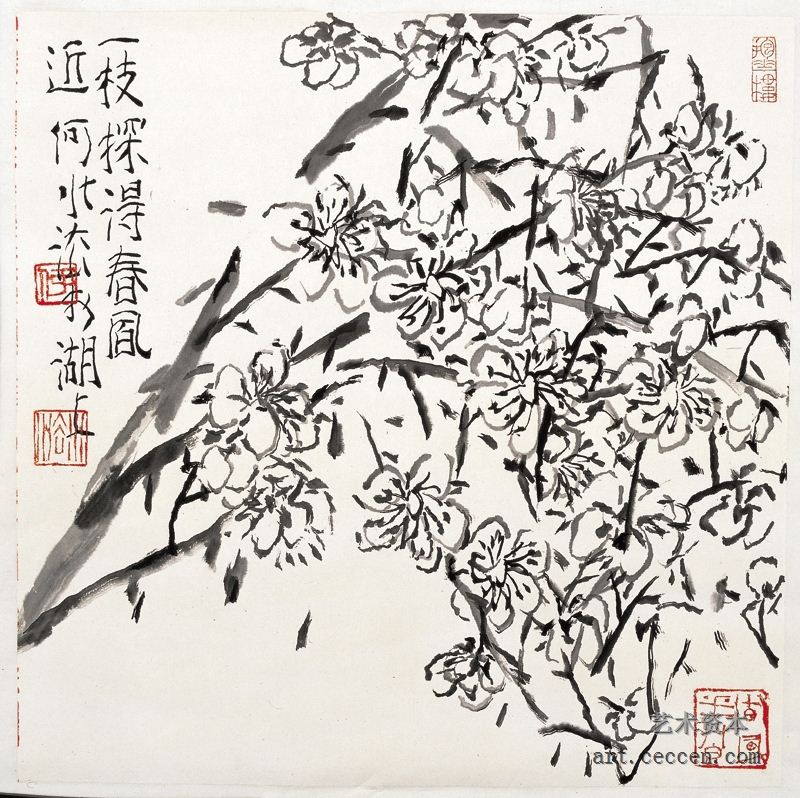 一枝探得春風
近 何水法於湖上
何
艺术资本
art.ceccen.com